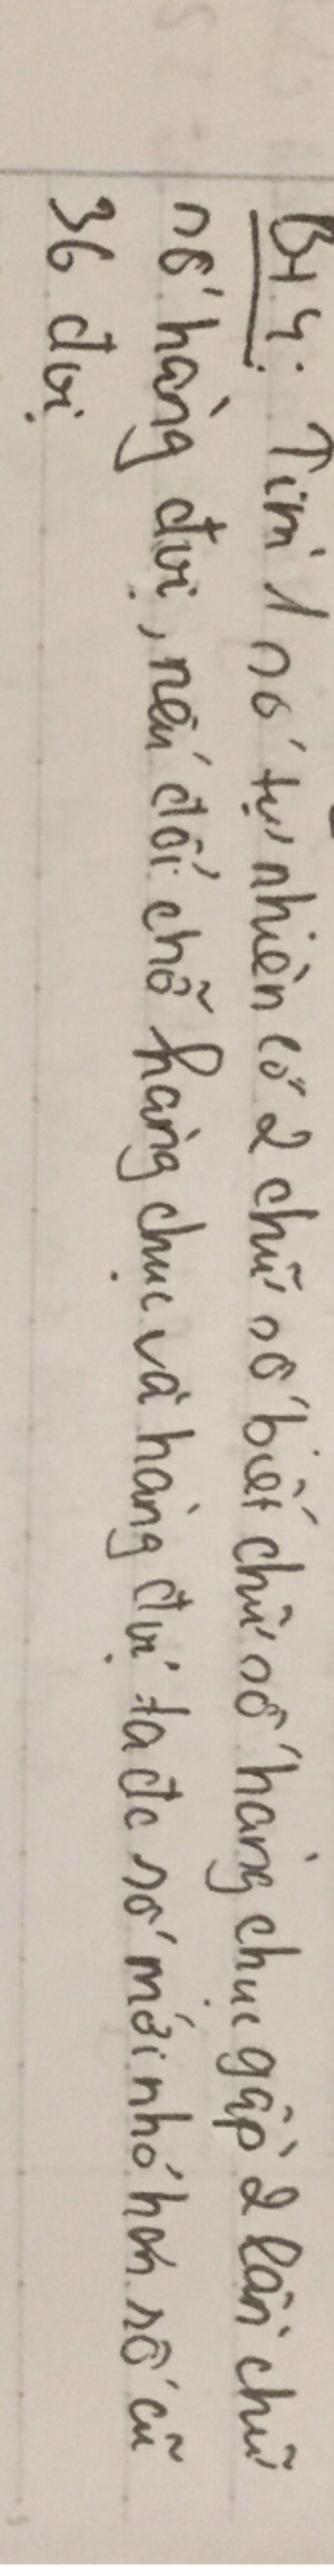 Bt 4: Tìm 1 số tự nhiên có 2 chữ số biết chữ số hàng chục gấp 2 lần chữ
số hàng đvị, nếu đổi chỗ hàng chục và hàng đvị ta đc số mới nhỏ hơn số cũ
36 đvị